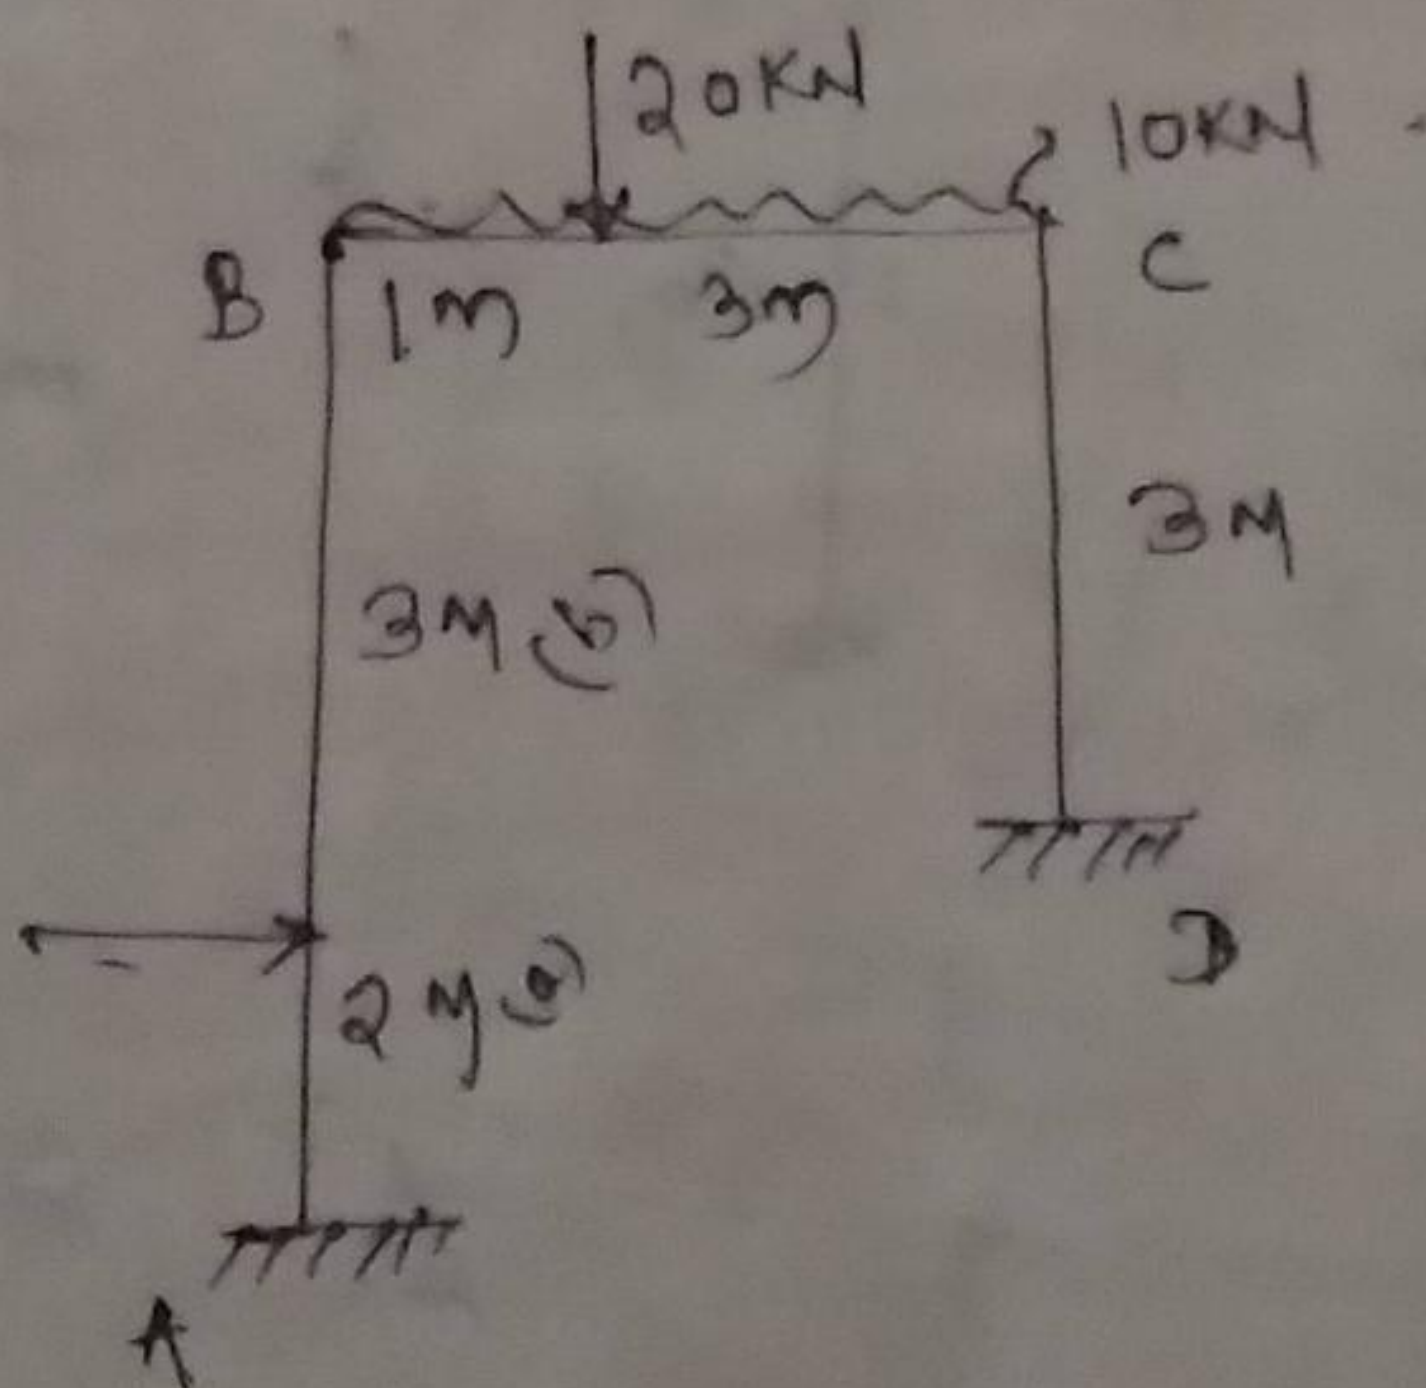 20KN
10KN
B
1m
3m
C
3M
3M (b)
D
2M (a)
A